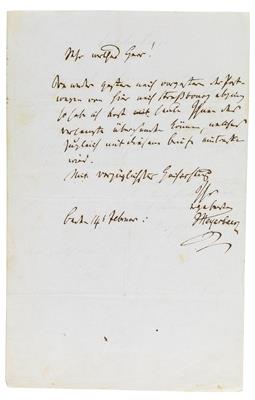 Sehr werther Herr!
Da weder gestern noch vorgestern der Post-
wagen von hier nach Straßbourg abging
so habe ich erst mit heute Ihnen das
verlangte übersenden können, welches
zugleich mit diesem briefe
wird.
Mit vorzüglichster Hochachtung
Ihr
ergebenster
Meyerbeer
Baden Februar: